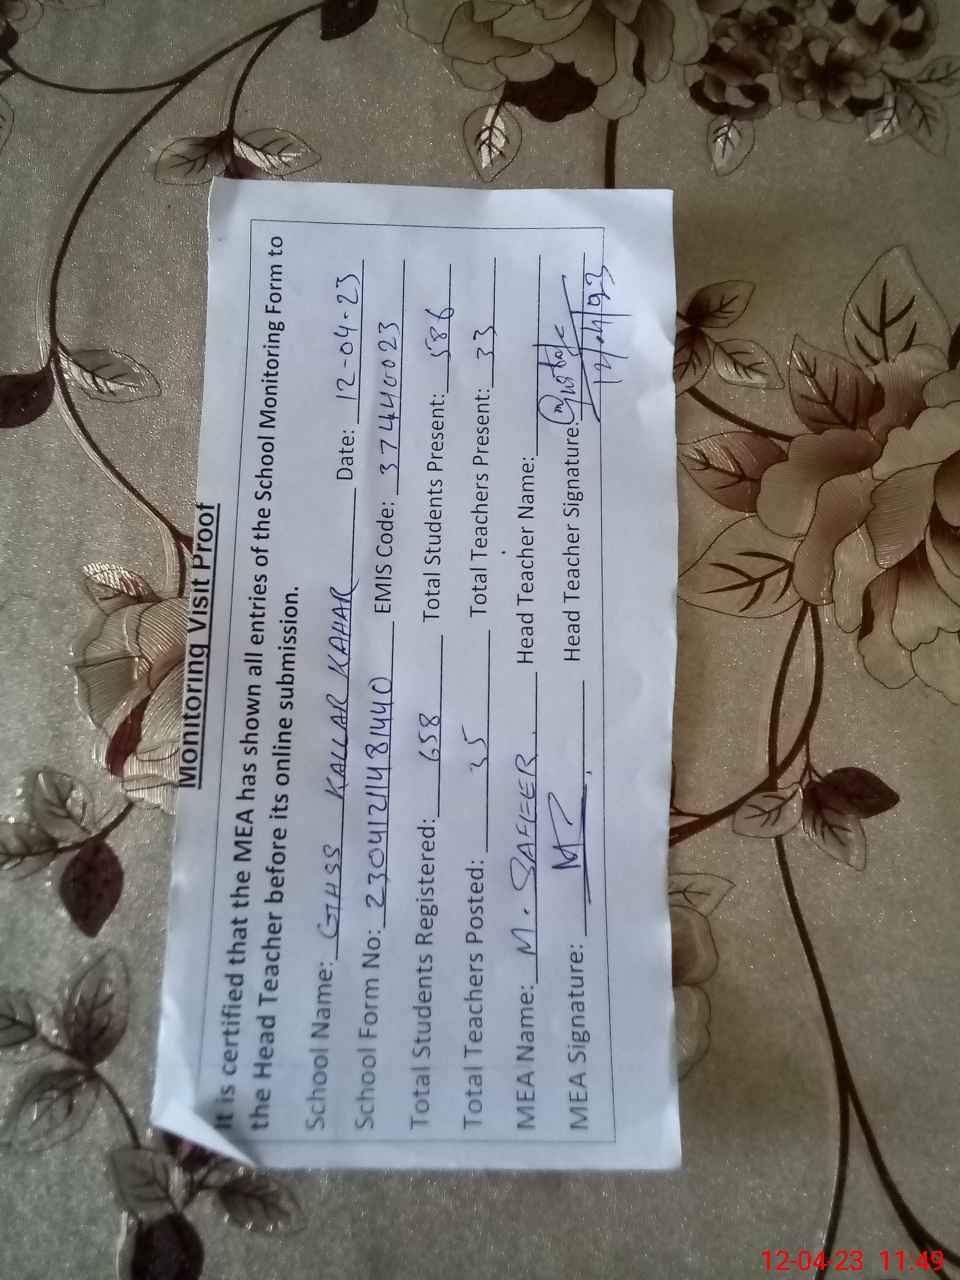 Monitoring Visit Proof
It is certified that the MEA has shown all entries of the School Monitoring Form to
the Head Teacher before its online submission.
School Name: GHSS KALLAR KAHAR Date: 12-04-23
School Form No: 23041211481440 EMIS Code: 37440023
Total Students Registered: 658 Total Students Present: 586
Total Teachers Posted: 35 Total Teachers Present: 33
MEA Name: M. SAFEER. Head Teacher Name:
MEA Signature: Head Teacher Signature:
12-04-23 11:49